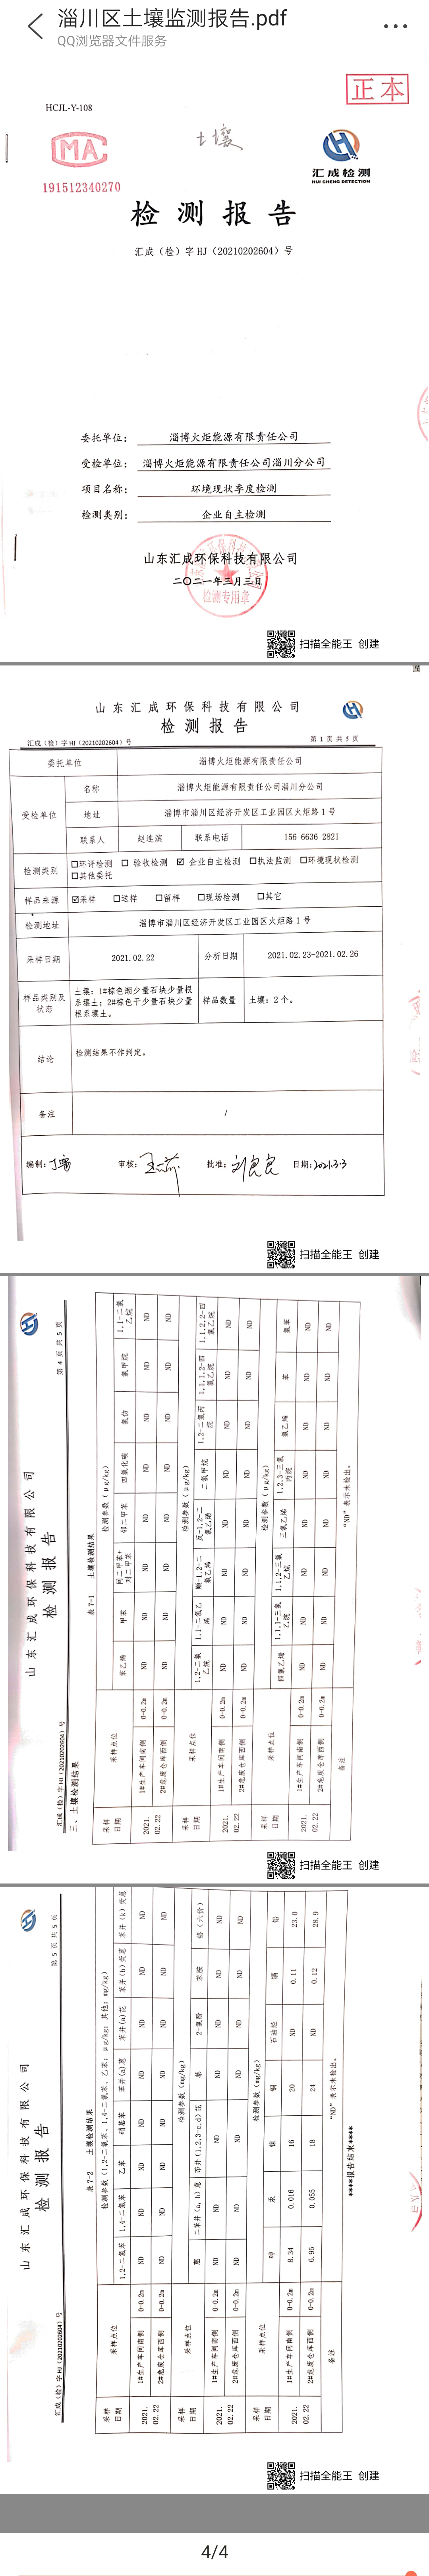 淄川区土壤监测报告.pdf
QQ浏览器文件服务
正本
HCJL-Y-108
土壤
MA
191512340270
汇成检测
HUI CHENG DETECTION
检测报告
汇成（检）字 HJ（20210202604）号
委托单位： 淄博火炬能源有限责任公司
受检单位： 淄博火炬能源有限责任公司淄川分公司
项目名称： 环境现状季度检测
检测类别： 企业自主检测
山东汇成环保科技有限公司
二〇二一年三月三日
检测专用章
扫描全能王 创建
山东汇成环保科技有限公司
检测报告
汇成（检）字 HJ（20210202604）号 第 1 页 共 5 页
委托单位 淄博火炬能源有限责任公司
受检单位 名称 淄博火炬能源有限责任公司淄川分公司
地址 淄博市淄川区经济开发区工业园区火炬路 1 号
联系人 赵连滨 联系电话 156 6636 2821
检测类别 ☐环评检测 ☐ 验收检测 ☑ 企业自主检测 ☐执法监测 ☐环境现状检测
☐其他委托
样品来源 ☑采样 ☐送样 ☐留样 ☐现场检测 ☐其它
检测地址 淄博市淄川区经济开发区工业园区火炬路 1 号
采样日期 2021.02.22 分析日期 2021.02.23-2021.02.26
样品类别及状态 土壤：1#棕色潮少量石块少量根系填土；2#棕色干少量石块少量根系填土。 样品数量 土壤：2 个。
结论 检测结果不作判定。
备注 /
编制： 审核： 批准： 日期：2021.3.3
扫描全能王 创建
山东汇成环保科技有限公司
检测报告
汇成（检）字 HJ（20210202604）号 第 4 页 共 5 页
三、土壤检测结果
表 7-1 土壤检测结果
采样日期 采样点位 检测参数（μg/kg）
苯乙烯 甲苯 间二甲苯+对二甲苯 邻二甲苯 四氯化碳 氯仿 氯甲烷 1,1-二氯乙烷
2021.02.22 1#生产车间南侧 0-0.2m ND ND ND ND ND ND ND ND
2#危废仓库西侧 0-0.2m ND ND ND ND ND ND ND ND
采样日期 采样点位 检测参数（μg/kg）
1,2-二氯乙烷 1,1-二氯乙烯 顺-1,2-二氯乙烯 反-1,2-二氯乙烯 二氯甲烷 1,2-二氯丙烷 1,1,1,2-四氯乙烷 1,1,2,2-四氯乙烷
2021.02.22 1#生产车间南侧 0-0.2m ND ND ND ND ND ND ND ND
2#危废仓库西侧 0-0.2m ND ND ND ND ND ND ND ND
采样日期 采样点位 检测参数（μg/kg）
四氯乙烯 1,1,1-三氯乙烷 1,1,2-三氯乙烷 三氯乙烯 1,2,3-三氯丙烷 氯乙烯 苯 氯苯
2021.02.22 1#生产车间南侧 0-0.2m ND ND ND ND ND ND ND ND
2#危废仓库西侧 0-0.2m ND ND ND ND ND ND ND ND
备注 "ND"表示未检出。
扫描全能王 创建
山东汇成环保科技有限公司
检测报告
汇成（检）字 HJ（20210202604）号 第 5 页 共 5 页
表 7-2 土壤检测结果
采样日期 采样点位 检测参数（1,2-二氯苯、1,4-二氯苯、乙苯：μg/kg；其他：mg/kg）
1,2-二氯苯 1,4-二氯苯 乙苯 硝基苯 苯并(a)蒽 苯并(a)芘 苯并(b)荧蒽 苯并(k)荧蒽
2021.02.22 1#生产车间南侧 0-0.2m ND ND ND ND ND ND ND ND
2#危废仓库西侧 0-0.2m ND ND ND ND ND ND ND ND
采样日期 采样点位 检测参数（mg/kg）
二苯并(a,h)蒽 茚并(1,2,3-c,d)芘 2-氯酚 苯胺 铬（六价）
2021.02.22 1#生产车间南侧 0-0.2m ND ND ND ND ND ND ND
2#危废仓库西侧 0-0.2m ND ND ND ND ND ND ND
采样日期 采样点位 检测参数（mg/kg）
砷 汞 镍 铜 石油烃 镉 铅
2021.02.22 1#生产车间南侧 0-0.2m 8.34 0.016 16 20 ND 0.11 23.0
2#危废仓库西侧 0-0.2m 6.95 0.055 18 24 ND 0.12 28.9
备注 "ND"表示未检出。
****报告结束****
扫描全能王 创建
4/4